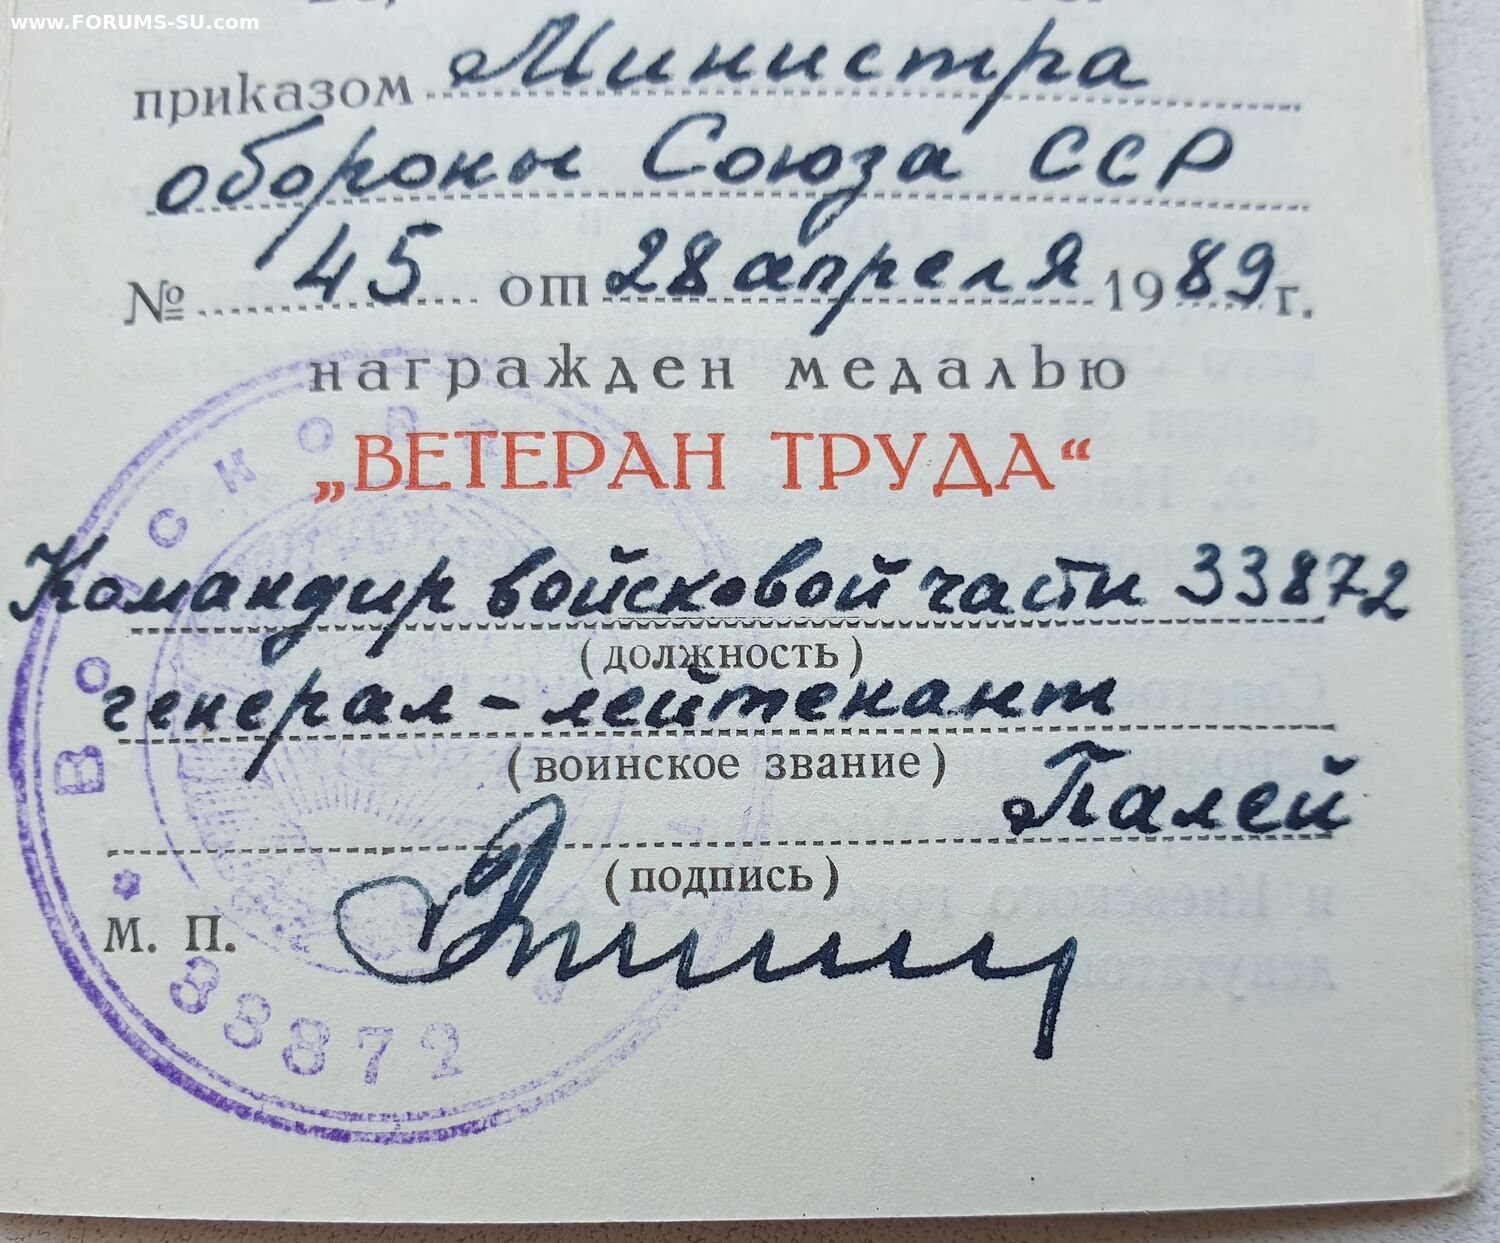 www.FORUMS-SU.com
приказом Министра
обороны Союза ССР
№ 45 от 28 апреля 1989 г.
награжден медалью
„ВЕТЕРАН ТРУДА“
Командир войсковой части 33872
(должность)
генерал-лейтенант
(воинское звание)
Палей
(подпись)
М. П.
33872